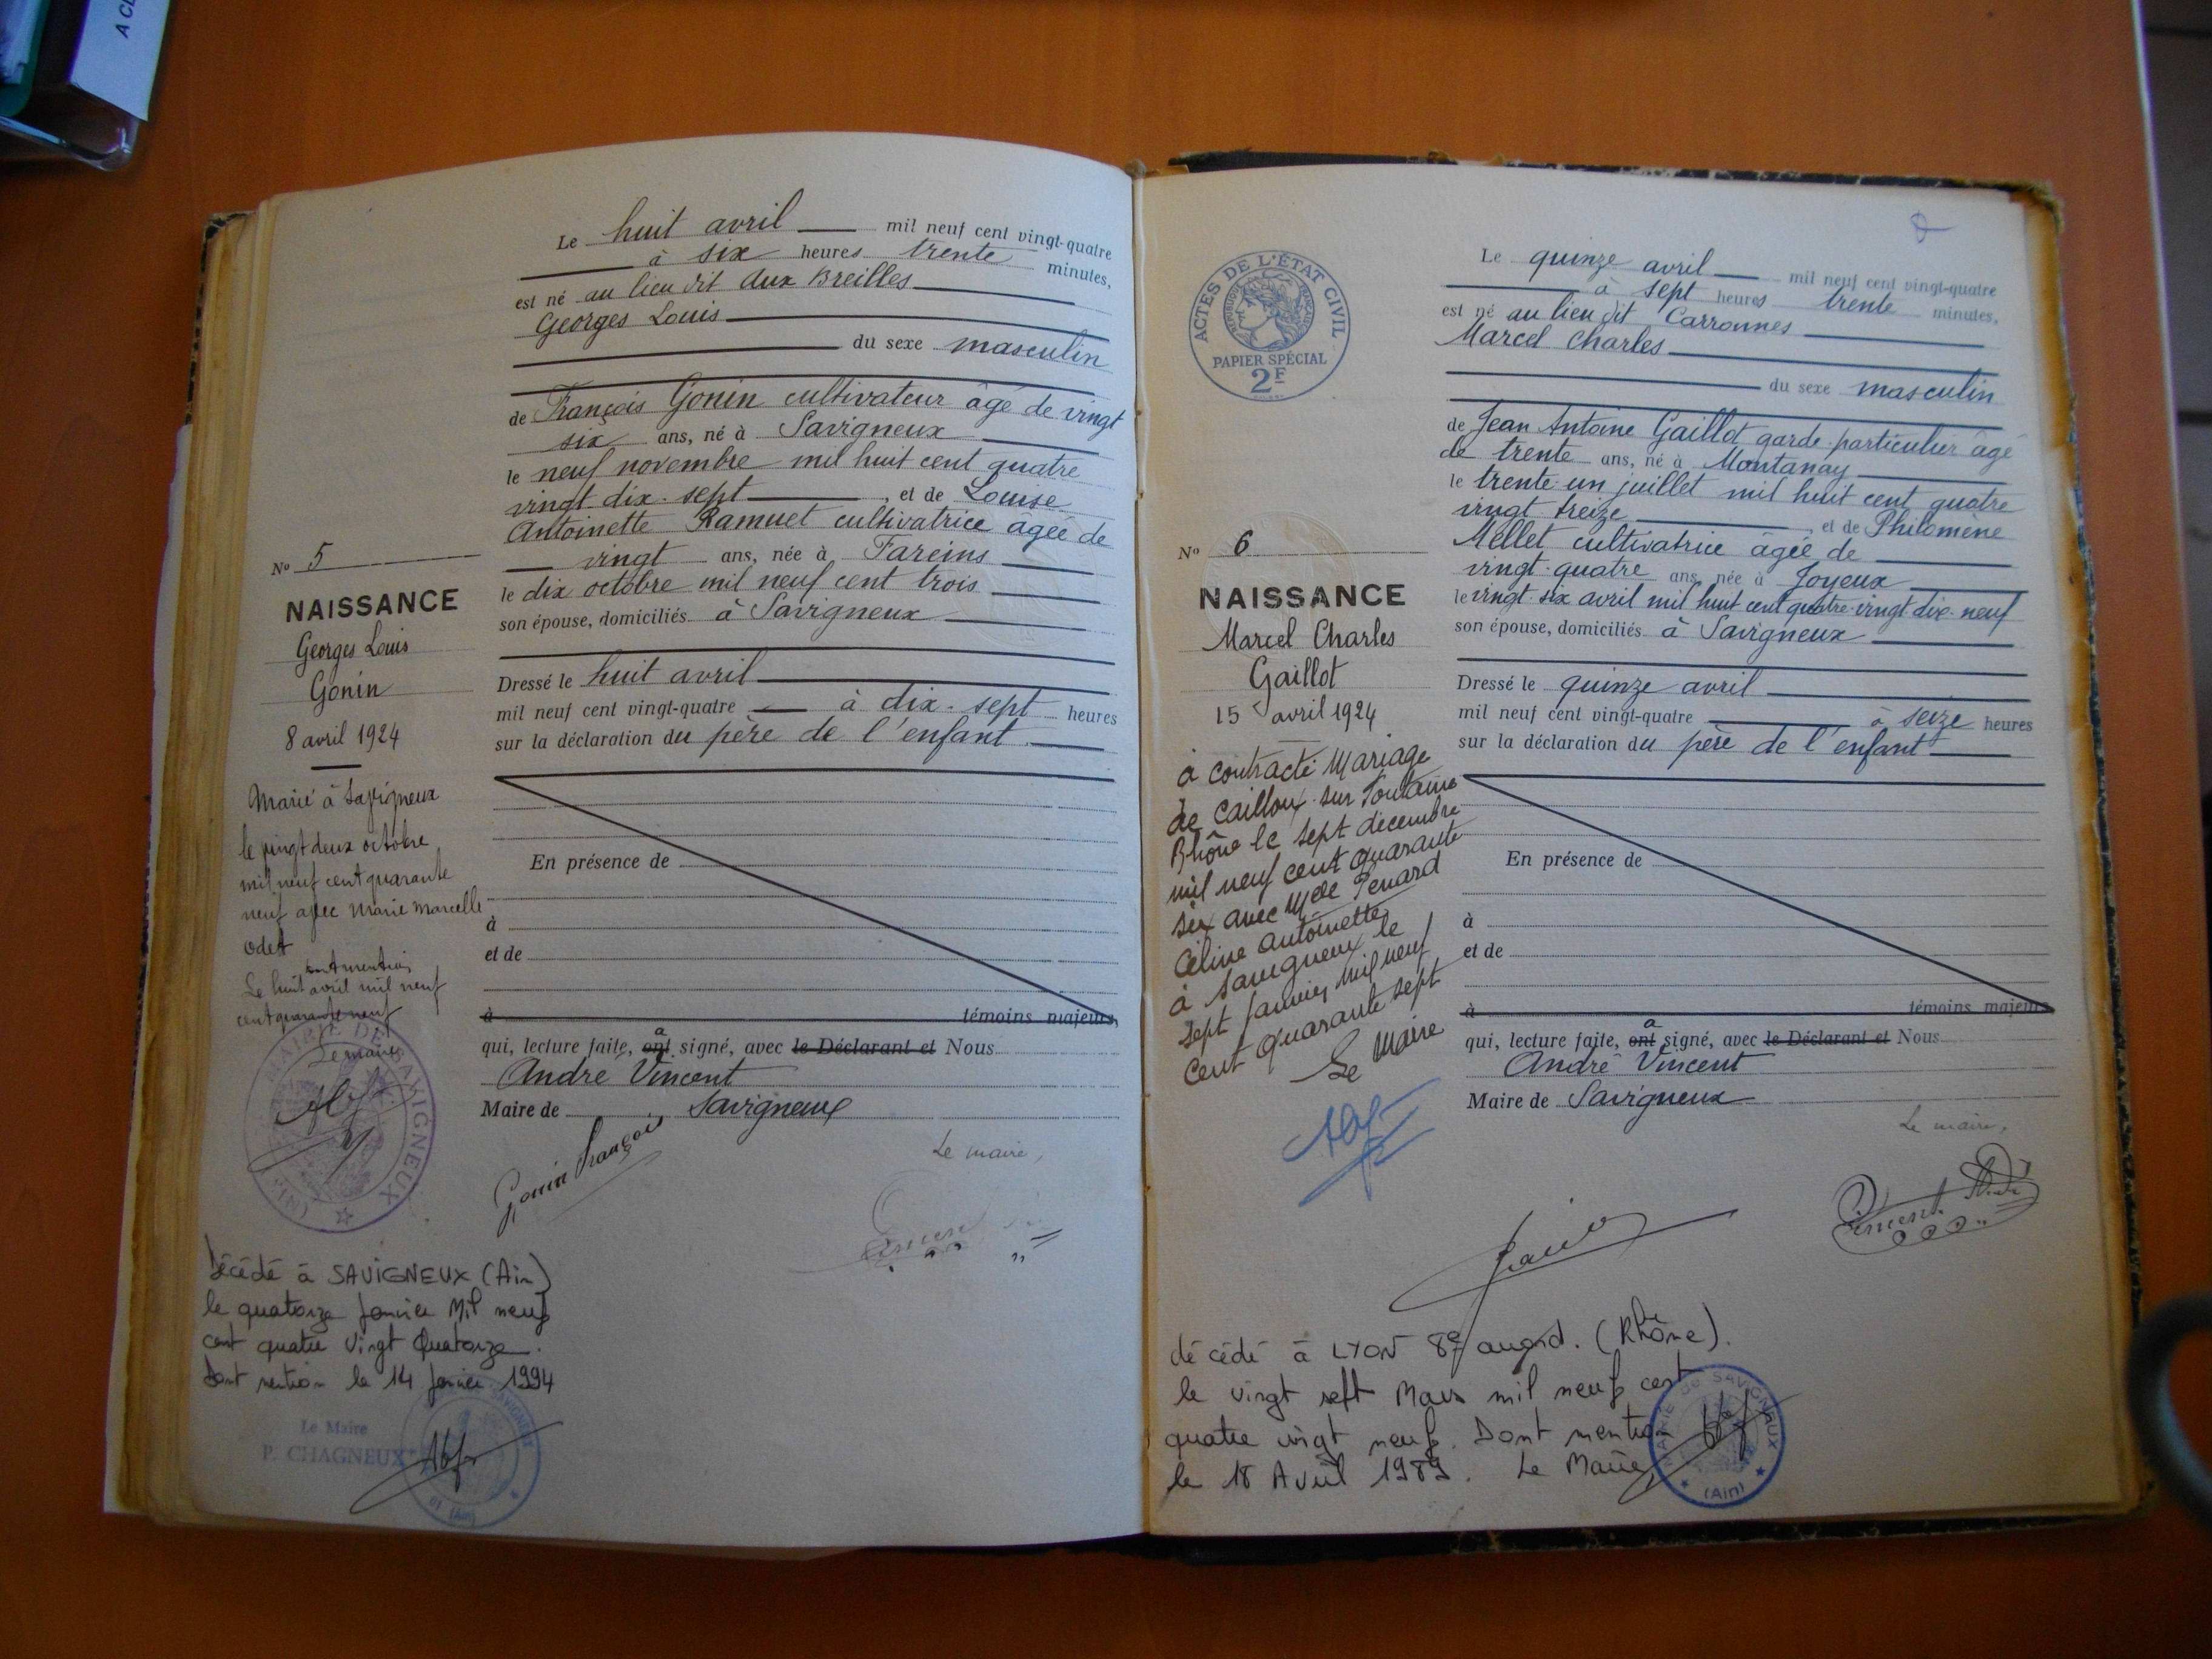 A CL
Le huit avril mil neuf cent vingt-quatre
à six heures trente minutes,
est né au lieu dit Aux Breilles
Georges Louis
du sexe masculin
de François Gonin cultivateur âgé de vingt
six ans, né à Savigneux
le neuf novembre mil huit cent quatre
vingt dix-sept, et de Louise
Antoinette Ramuet cultivatrice âgée de
vingt ans, née à Fareins
le dix octobre mil neuf cent trois
son épouse, domiciliés à Savigneux
Dressé le huit avril
mil neuf cent vingt-quatre à dix-sept heures
sur la déclaration du père de l'enfant
En présence de
à
et de
à témoins majeurs,
a
qui, lecture faite, ont signé, avec le Déclarant et Nous
André Vincent
Maire de Savigneux
Gonin François
Le maire,
No 5
NAISSANCE
Georges Louis
Gonin
8 avril 1924
Marié à Savigneux
le vingt deux octobre
mil neuf cent quarante
neuf avec Marie Marcelle
Odet
dont mention
Le huit avril mil neuf
cent quarante neuf
Le maire
MAIRIE DE SAVIGNEUX (AIN)
Décédé à SAVIGNEUX (Ain)
le quatorze Janvier Mil neuf
cent quatre Vingt Quatorze.
Dont mention le 14 Janvier 1994
Le Maire
P. CHAGNEUX
SAVIGNEUX
01 (Ain)
ACTES DE L'ÉTAT CIVIL
RÉPUBLIQUE FRANÇAISE
PAPIER SPÉCIAL
2F
Le quinze avril mil neuf cent vingt-quatre
à sept heures trente minutes,
est né au lieu dit Carronnes
Marcel Charles
du sexe masculin
de Jean Antoine Gaillot garde-particulier âgé
de trente ans, né à Montanay
le trente-un juillet mil huit cent quatre
vingt treize, et de Philomène
Mellet cultivatrice âgée de
vingt-quatre ans, née à Joyeux
le vingt-six avril mil huit cent quatre-vingt-dix-neuf
son épouse, domiciliés à Savigneux
Dressé le quinze avril
mil neuf cent vingt-quatre à seize heures
sur la déclaration du père de l'enfant
En présence de
à
et de
à témoins majeurs
a
qui, lecture faite, ont signé, avec le Déclarant et Nous
André Vincent
Maire de Savigneux
Le maire,
Vincent André
No 6
NAISSANCE
Marcel Charles
Gaillot
15 avril 1924
a contracté Mariage
de Cailloux sur Fontaine
Rhône le sept décembre
mil neuf cent quarante
six avec Melle Penard
Céline Antoinette
à Savigneux le
sept janvier mil neuf
cent quarante sept
Le Maire
décédé à LYON 8e arrond. (Rhône).
le vingt sept Mars mil neuf cent
quatre vingt neuf. Dont mention
le 18 Avril 1989. Le Maire,
MAIRIE DE SAVIGNEUX
(Ain)